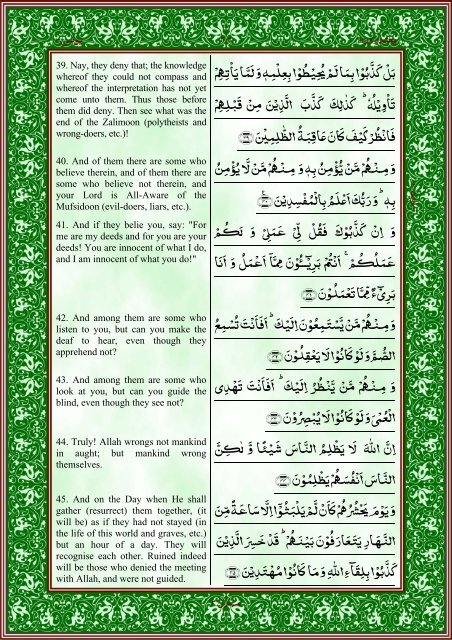 39. Nay, they deny that; the knowledge
whereof they could not compass and
whereof the interpretation has not yet
come unto them. Thus those before
them did deny. Then see what was the
end of the Zalimoon (polytheists and
wrong-doers, etc.)!
بَلْ كَذَّبُوْا بِمَا لَمْ يُحِيْطُوْا بِعِلْمِهٖ وَ لَمَّا يَاْتِهِمْ
تَاْوِيْلُهٗ ؕ كَذٰلِكَ كَذَّبَ الَّذِيْنَ مِنْ قَبْلِهِمْ
فَانْظُرْ كَيْفَ كَانَ عَاقِبَةُ الظّٰلِمِيْنَ
40. And of them there are some who
believe therein, and of them there are
some who believe not therein, and
your Lord is All-Aware of the
Mufsidoon (evil-doers, liars, etc.).
وَ مِنْهُمْ مَّنْ يُّؤْمِنُ بِهٖ وَ مِنْهُمْ مَّنْ لَّا يُؤْمِنُ
بِهٖ ؕ وَ رَبُّكَ اَعْلَمُ بِالْمُفْسِدِيْنَ
41. And if they belie you, say: "For
me are my deeds and for you are your
deeds! You are innocent of what I do,
and I am innocent of what you do!"
وَ اِنْ كَذَّبُوْكَ فَقُلْ لِّيْ عَمَلِيْ وَ لَكُمْ
عَمَلُكُمْ ۚ اَنْتُمْ بَرِيْٓـُٔوْنَ مِمَّاۤ اَعْمَلُ وَ اَنَا
بَرِيْٓءٌ مِّمَّا تَعْمَلُوْنَ
42. And among them are some who
listen to you, but can you make the
deaf to hear, even though they
apprehend not?
وَ مِنْهُمْ مَّنْ يَّسْتَمِعُوْنَ اِلَيْكَ ؕ اَفَاَنْتَ تُسْمِعُ
الصُّمَّ وَ لَوْ كَانُوْا لَا يَعْقِلُوْنَ
43. And among them are some who
look at you, but can you guide the
blind, even though they see not?
وَ مِنْهُمْ مَّنْ يَّنْظُرُ اِلَيْكَ ؕ اَفَاَنْتَ تَهْدِي
الْعُمْيَ وَ لَوْ كَانُوْا لَا يُبْصِرُوْنَ
44. Truly! Allah wrongs not mankind
in aught; but mankind wrong
themselves.
اِنَّ اللّٰهَ لَا يَظْلِمُ النَّاسَ شَيْـًٔا وَّ لٰكِنَّ
النَّاسَ اَنْفُسَهُمْ يَظْلِمُوْنَ
45. And on the Day when He shall
gather (resurrect) them together, (it
will be) as if they had not stayed (in
the life of this world and graves, etc.)
but an hour of a day. They will
recognise each other. Ruined indeed
will be those who denied the meeting
with Allah, and were not guided.
وَ يَوْمَ يَحْشُرُهُمْ كَاَنْ لَّمْ يَلْبَثُوْۤا اِلَّا سَاعَةً مِّنَ
النَّهَارِ يَتَعَارَفُوْنَ بَيْنَهُمْ ؕ قَدْ خَسِرَ الَّذِيْنَ
كَذَّبُوْا بِلِقَآءِ اللّٰهِ وَ مَا كَانُوْا مُهْتَدِيْنَ